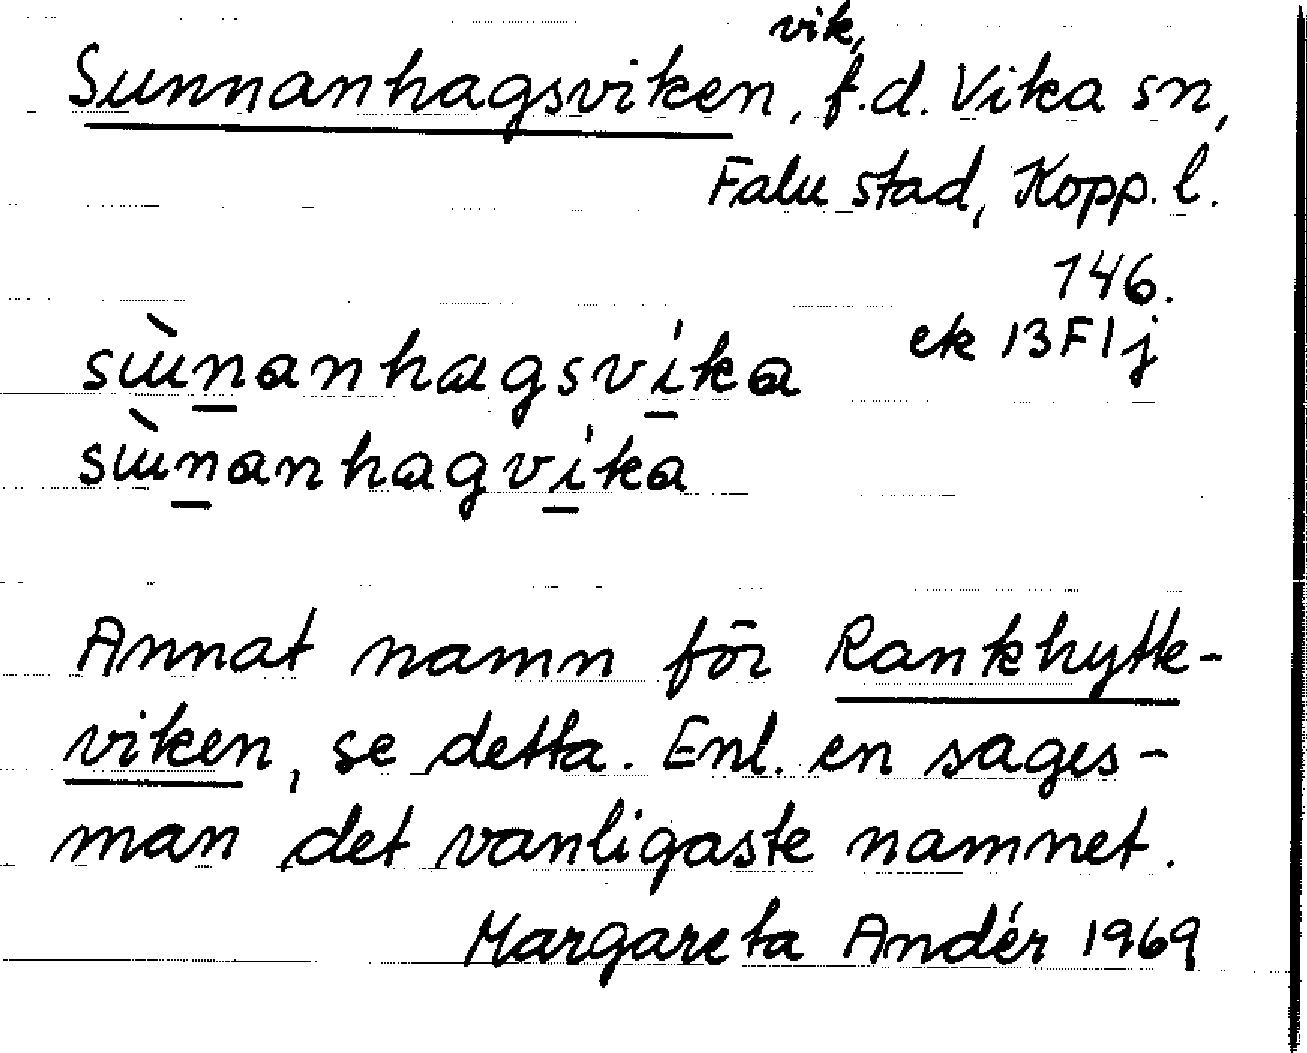 Sunnanhagsviken, vik, f.d. Vika sn,
Falu stad, Kopp. l.
146.
ek 13F1j
sɯ̀nanhagsvika
sɯ̀nanhagvika
Annat namn för Rankhytte-
viken, se detta. Enl. en sages-
man det vanligaste namnet.
Margareta Andér 1969